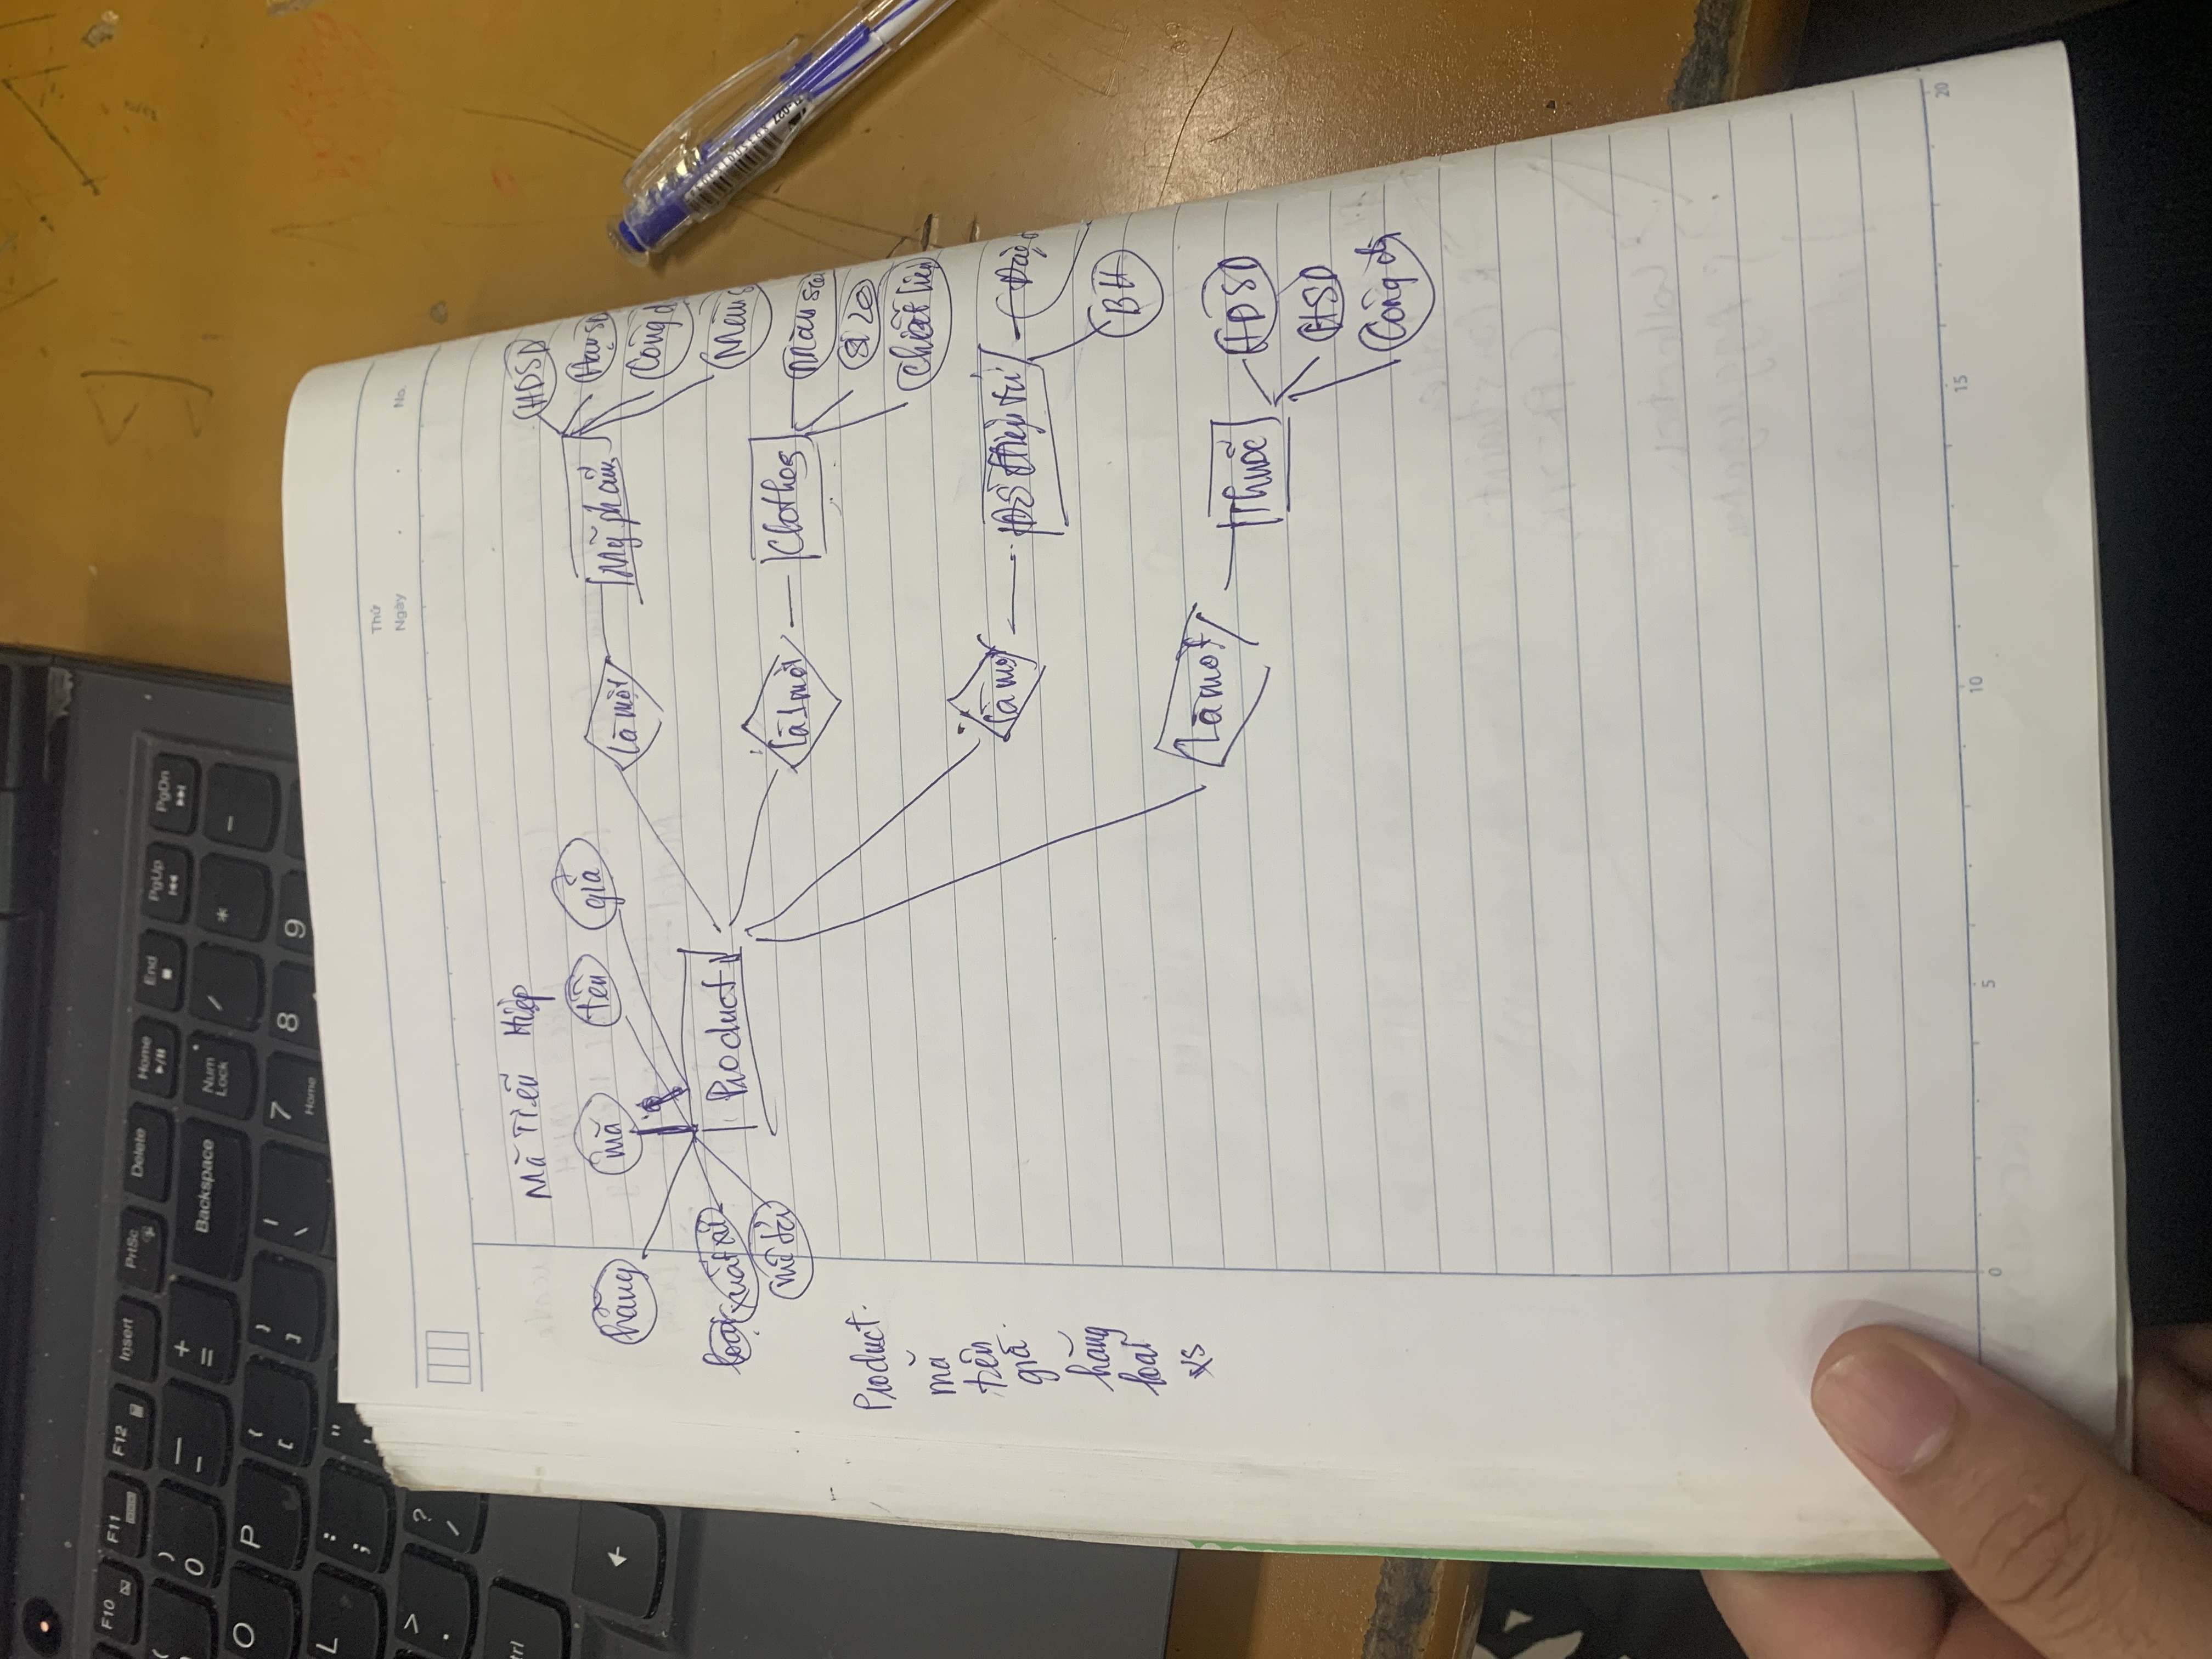 F10 F11 F12 Insert PrtSc Delete Home End PgUp PgDn
) 0 — - + = Backspace Num Lock / * -
O P { [ } ] | \ 7 Home 8 9
L : ; "
> . ? /
trl
Thứ
Ngày . . No.
Mã Tiểu Hiệp
hãng mã tên giá
loại xuất xứ
mô tả
Product
Là một Mỹ phẩm
HDSD
Hạn SD
Công d
Màu s
Là 1 một Clothes
Màu sắ
Size
Chất liệu
Là một Đồ điện tử
BH
Là một Thuốc
HDSD
HSD
Công d
Product.
mã
tên
giá
hãng
loại
xs
0 5 10 15 20